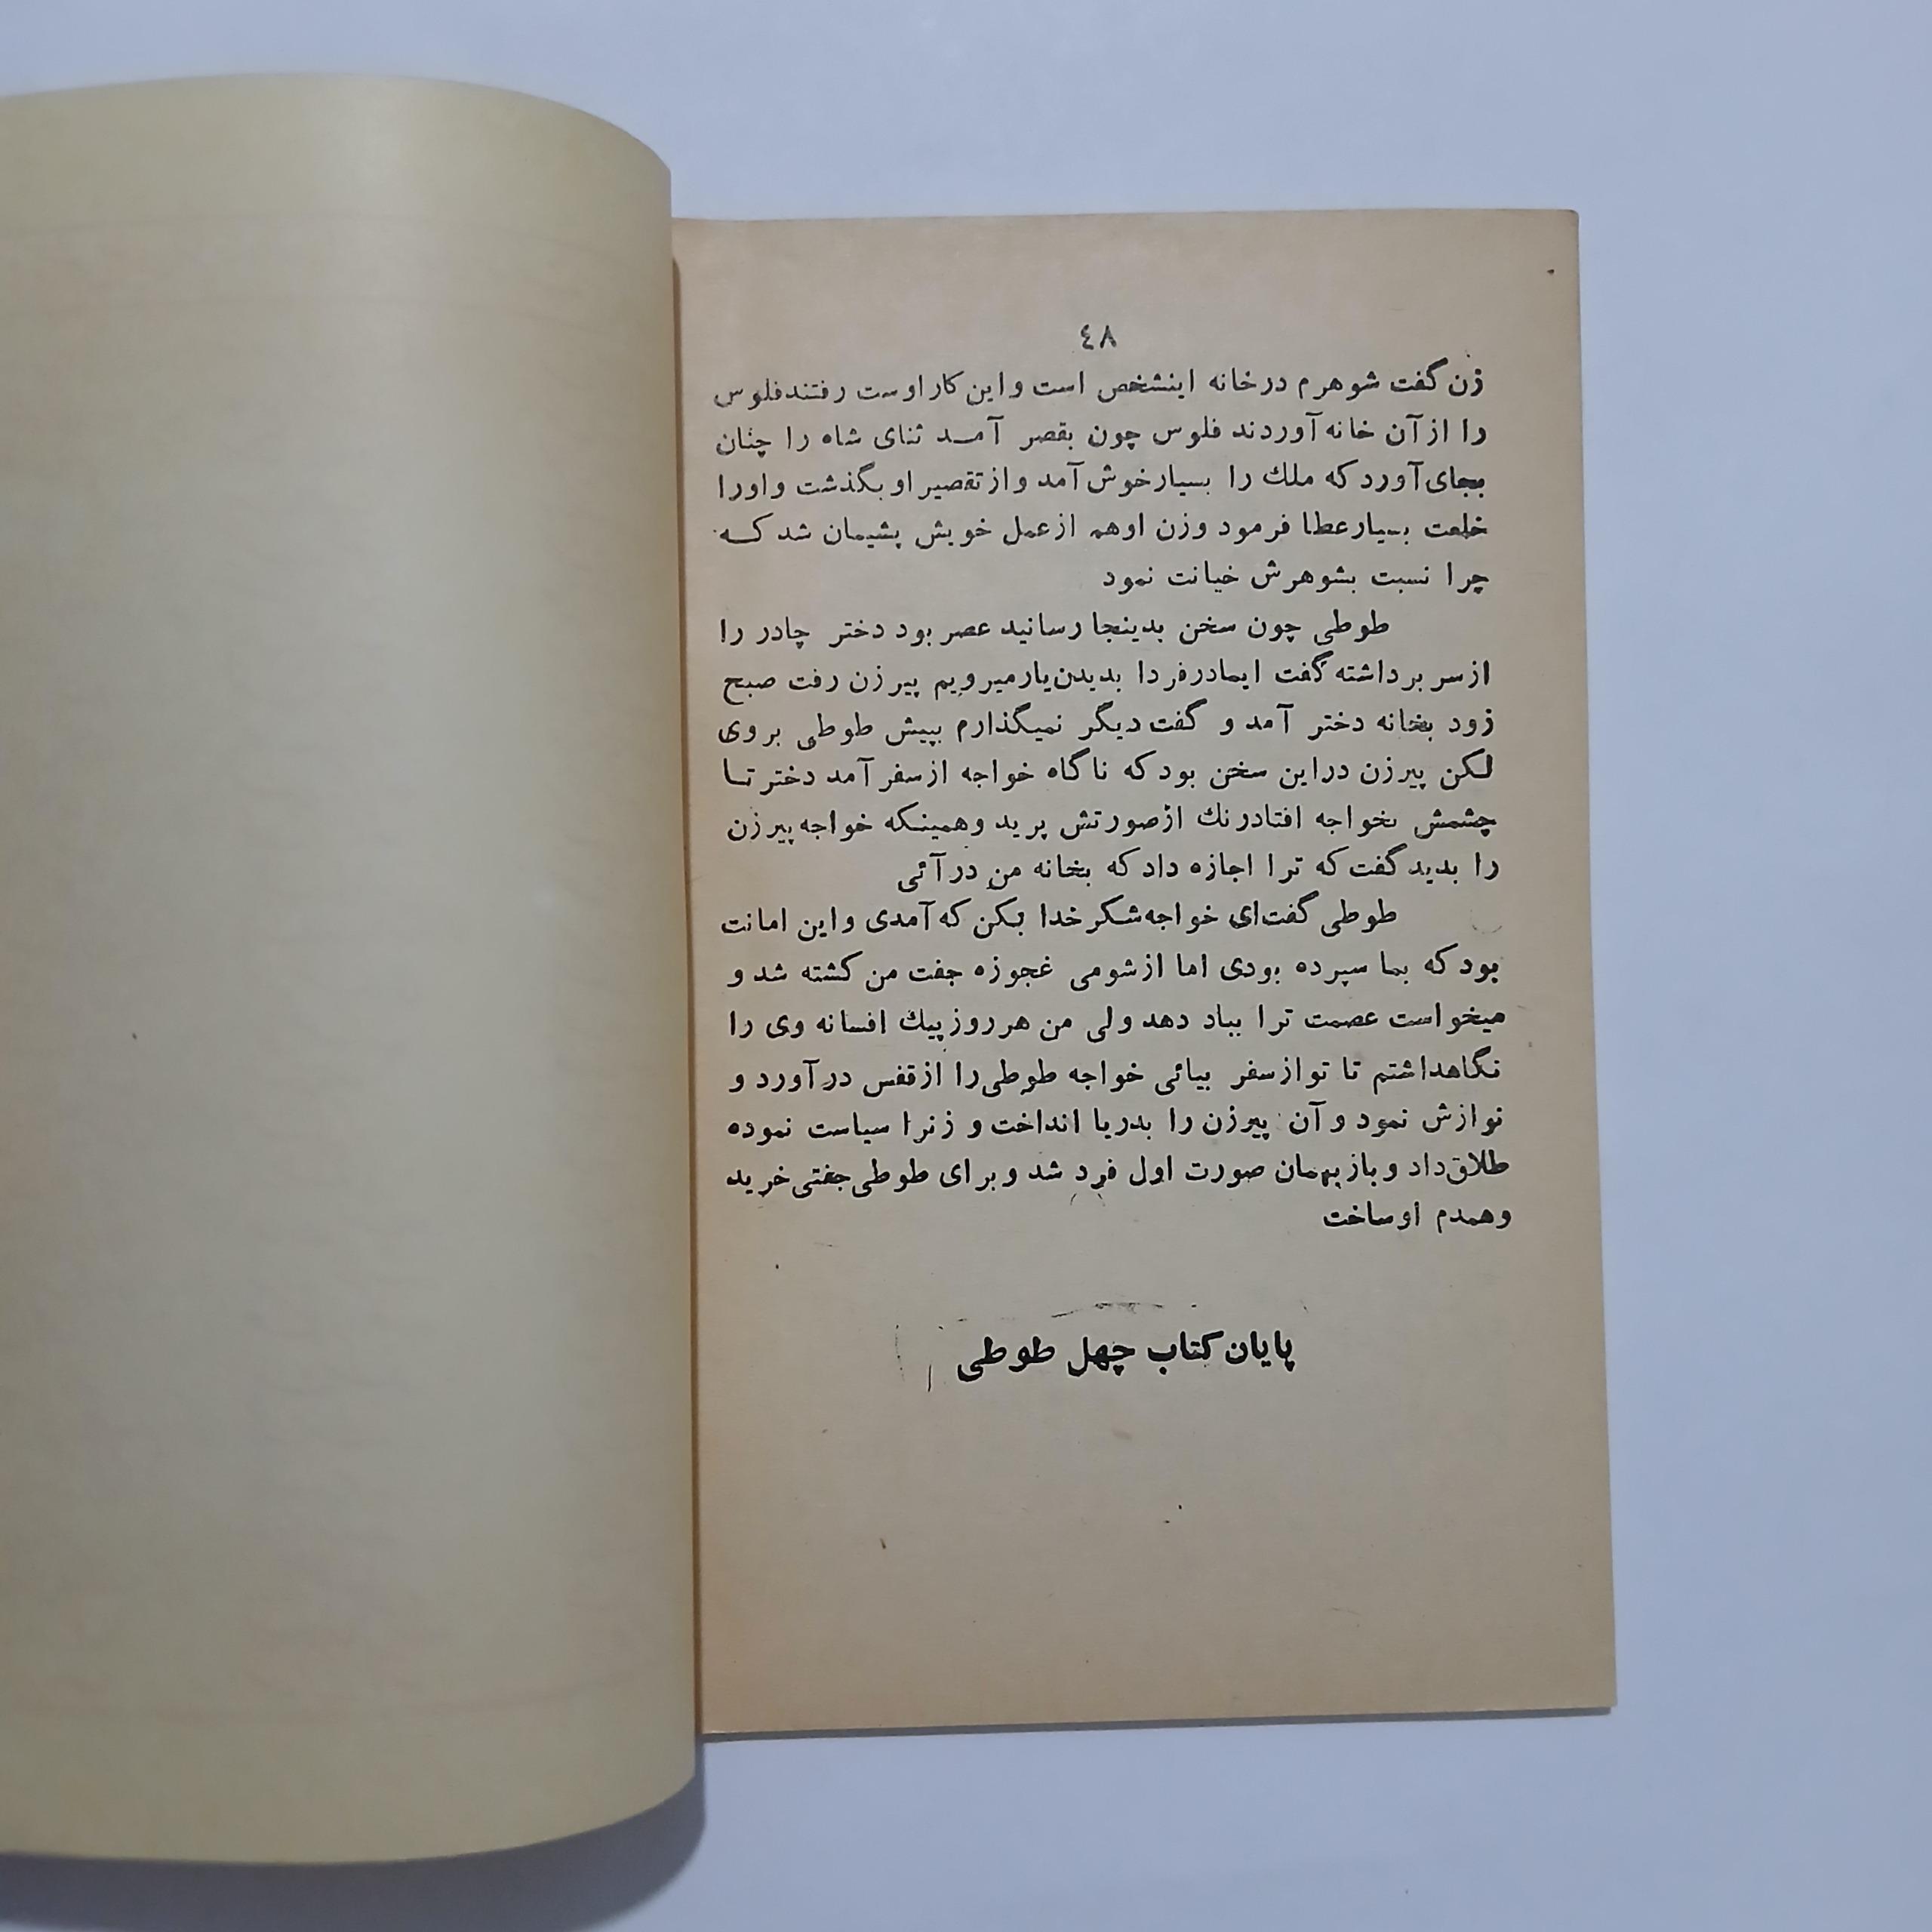 ٤٨
زن گفت شوهرم درخانه اینشخص است واین کار اوست رفتند فلوس
را از آن خانه آوردند فلوس چون بقصر آمد ثنای شاه را چنان
بجای آورد که ملك را بسیار خوش آمد واز تقصیر او بگذشت واورا
خلعت بسیار عطا فرمود وزن اوهم از عمل خویش پشیمان شد که
چرا نسبت بشوهرش خیانت نمود
طوطی چون سخن بدینجا رسانید عصر بود دختر چادر را
از سر برداشته گفت ایمادر فردا بدیدن یار میرویم پیرزن رفت صبح
زود بخانه دختر آمد و گفت دیگر نمیگذارم بپیش طوطی بروی
لکن پیرزن دراین سخن بود که ناگاه خواجه از سفر آمد دختر تا
چشمش بخواجه افتاد رنك از صورتش پرید وهمینکه خواجه پیرزن
را بدید گفت که ترا اجازه داد که بخانه من در آئی
طوطی گفت ای خواجه شکر خدا بکن که آمدی واین امانت
بود که بما سپرده بودی اما از شومی غجوزه جفت من کشته شد و
میخواست عصمت ترا بباد دهد ولی من هر روز بیك افسانه وی را
نگاهداشتم تا تو از سفر بیائی خواجه طوطی را از قفس در آورد و
نوازش نمود و آن پیرزن را بدریا انداخت و زنرا سیاست نموده
طلاق داد و باز بهمان صورت اول فرد شد و برای طوطی جفتی خرید
وهمدم او ساخت
پایان کتاب چهل طوطی